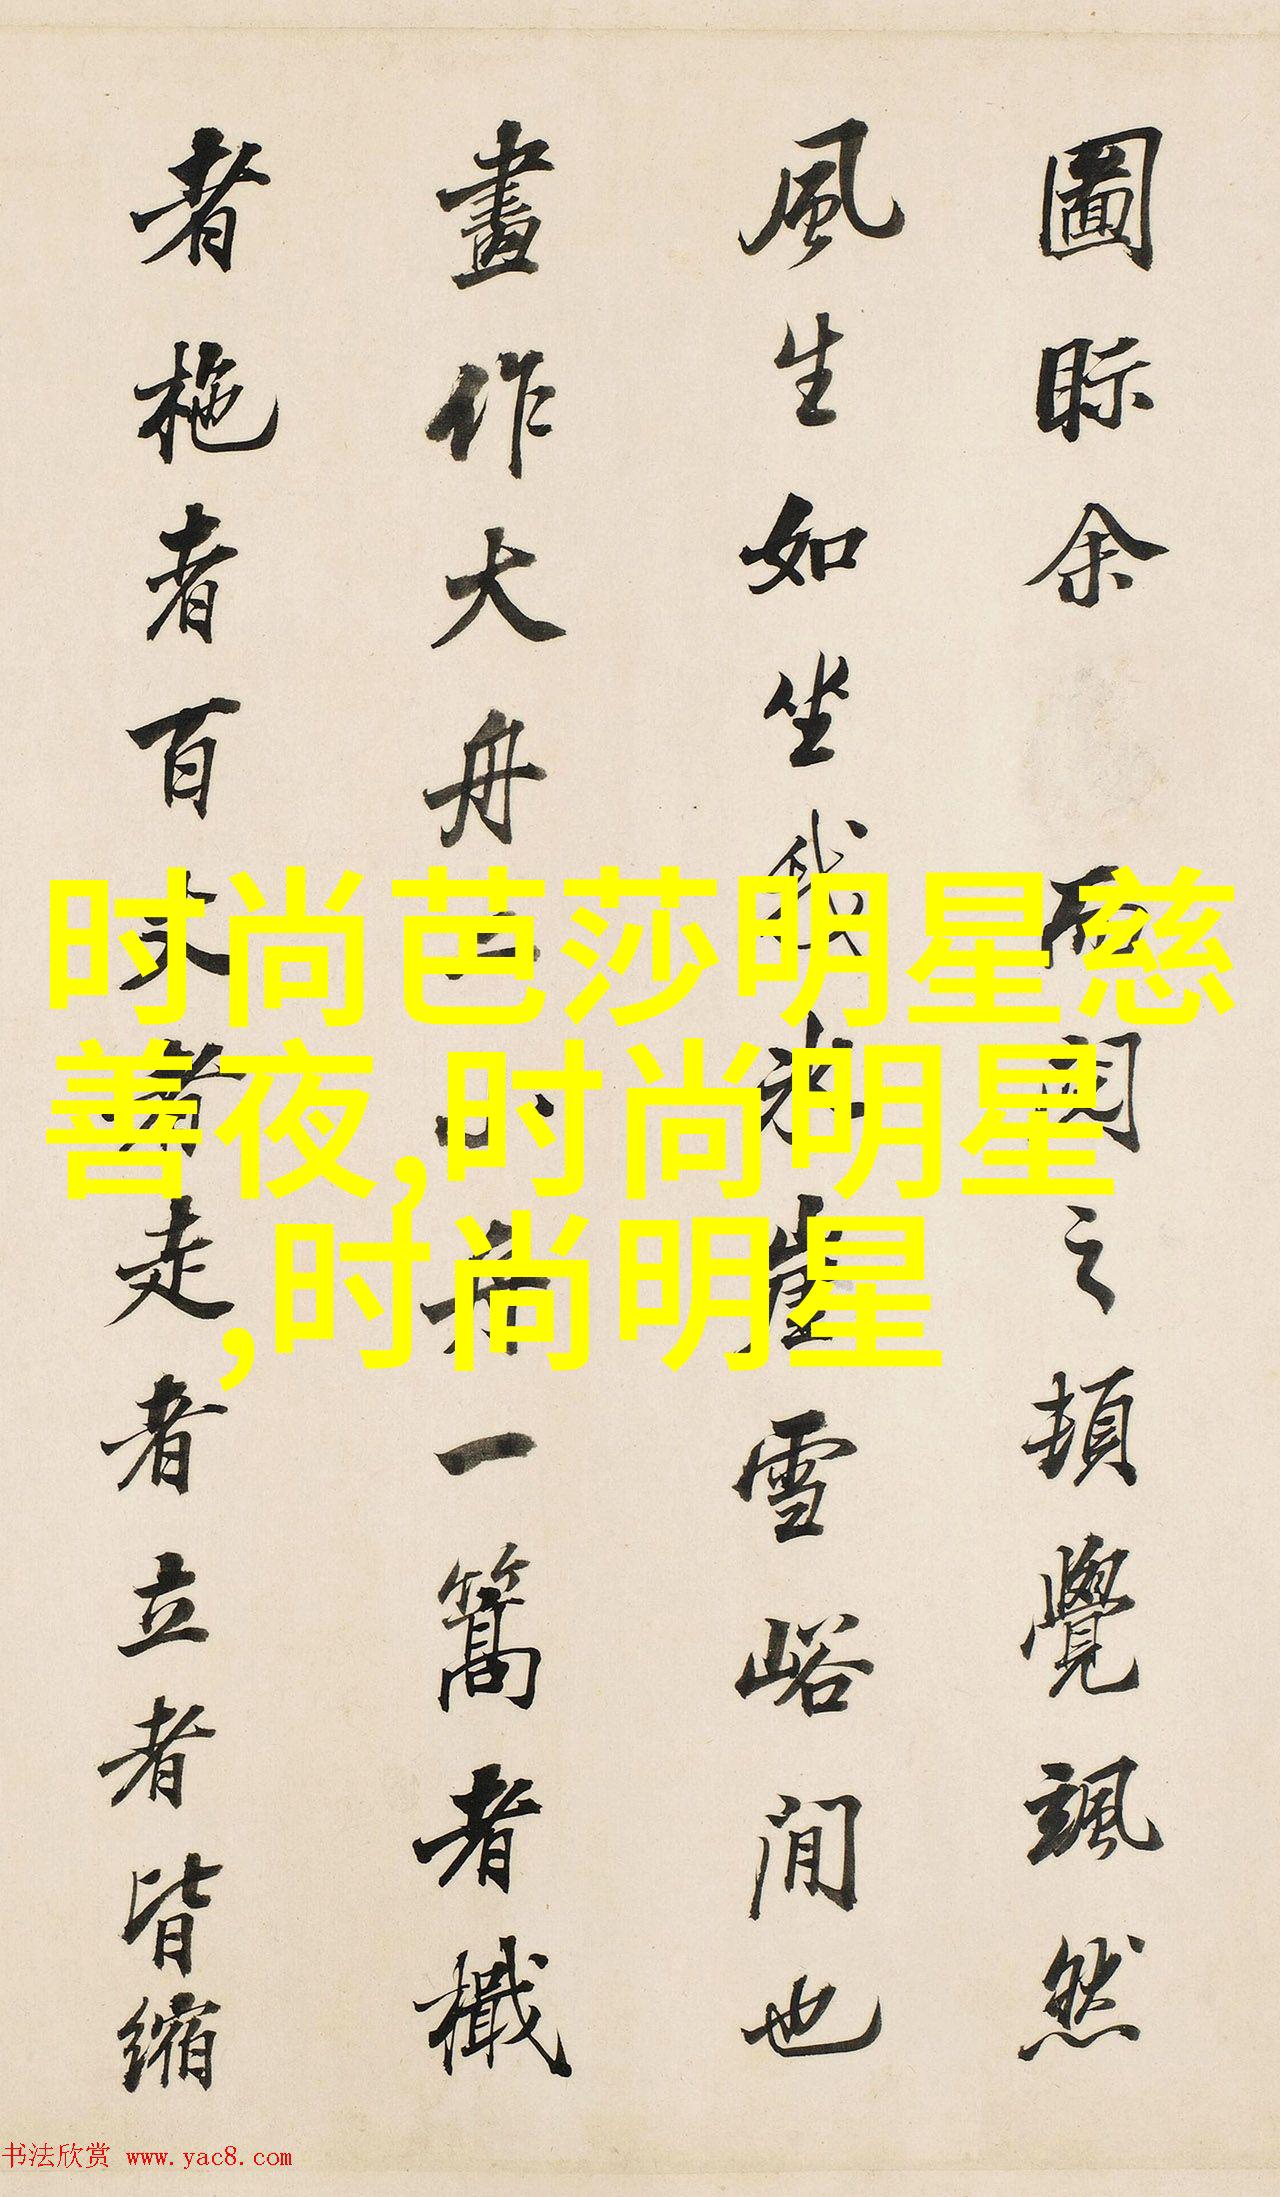 圖眎余而之頓覺颯然
風生如坐我冰崖雪峪間也
畫作大舟小舟一篙者檝
者柂者百丈者走者立者皆縮
时尚芭莎明星慈
善夜,时尚明星
,时尚明星
书法欣赏 www.yac8.com